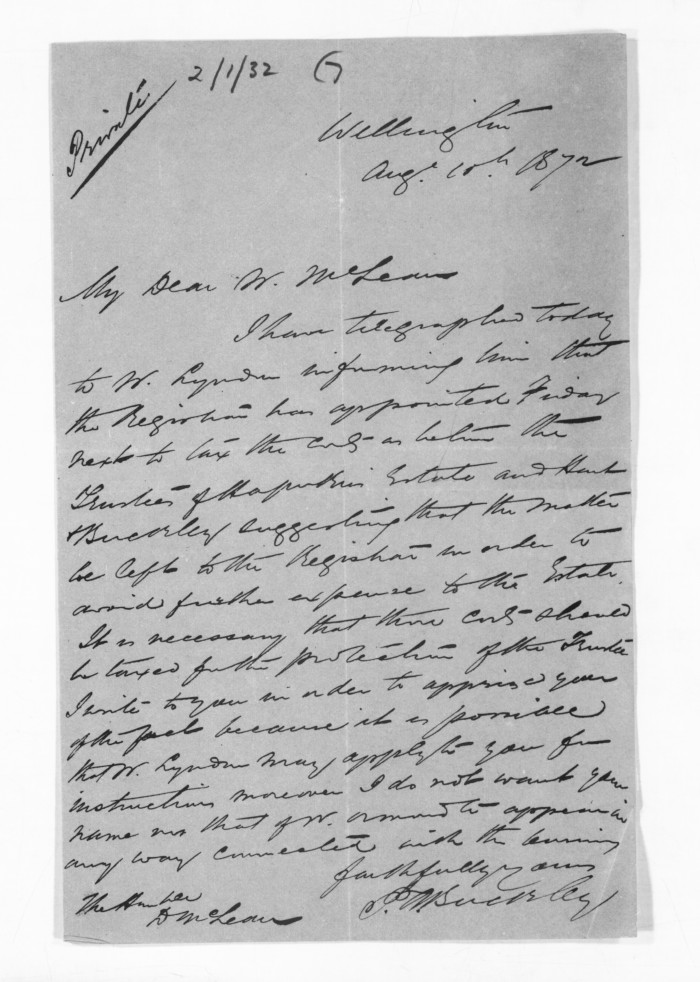 Private
2/1/32
Wellington
Augt 10th 1872
My Dear Mr McLean
I have telegraphed today
to Mr Lyndon informing him that
the Registrar has appointed Friday
next to tax the costs as between the
Trustees of Estate and Hart
& Buckley suggesting that the matter
be left to the Registrar in order to
avoid further expense to the Estate.
It is necessary that those costs should
be taxed for the protection of the Trustee
I write to you in order to apprise you
of the fact because it is possible
that Mr Lyndon may apply to you for
instructions moreover I do not want your
name nor that of Mr Ormond to appear in
any way connected with the business
faithfully yours
P. A. Buckley
The Honble
D McLean